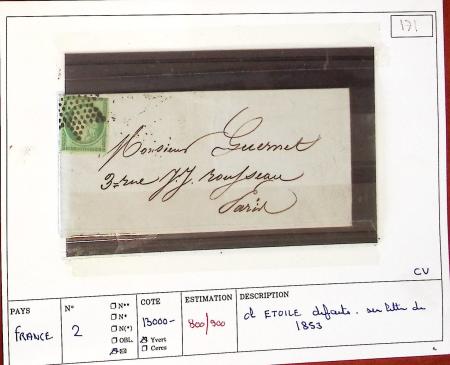 171
Monsieur Guernet
3 rue J.J. rousseau
Paris
CV
PAYS
FRANCE
N°
2
N**
N*
N(*)
OBL.
COTE
13000-
Yvert
Ceres
ESTIMATION
800/900
DESCRIPTION
ETOILE défauts. sur lettre de
1853